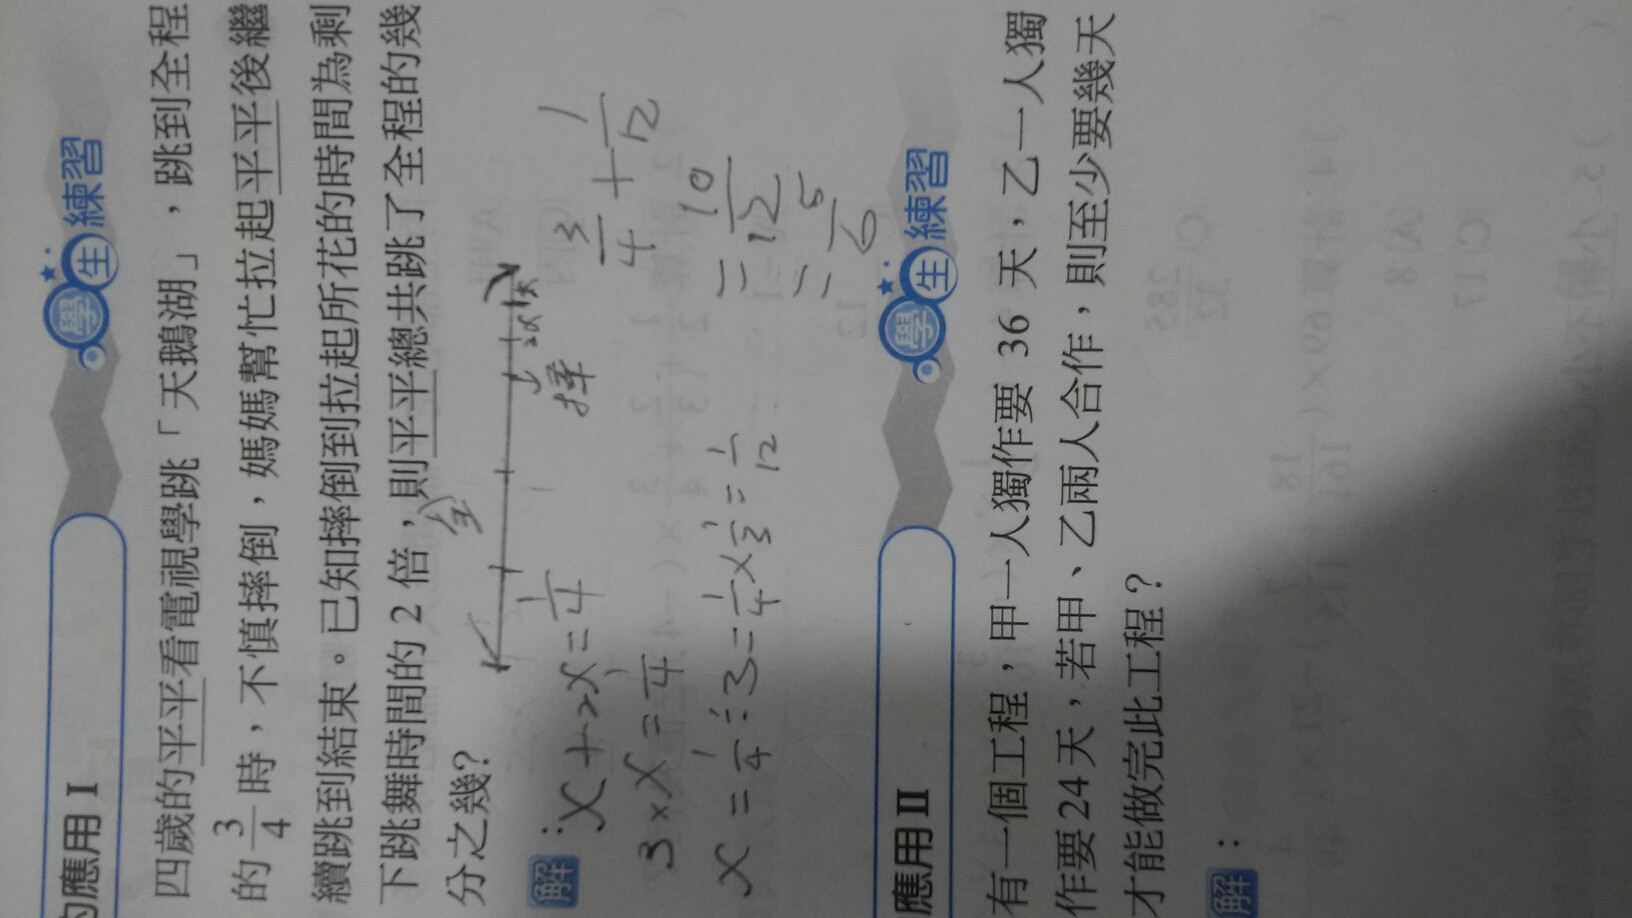 應用 I
學生練習
四歲的平平看電視學跳「天鵝湖」，跳到全程
的 3/4 時，不慎摔倒，媽媽幫忙拉起平平後繼
續跳到結束。已知摔倒到拉起所花的時間為剩
下跳舞時間的 2 倍，則平平總共跳了全程的幾
分之幾？
全
摔
2x
解：
x+2x=1/4
3×x=1/4
x=1/4÷3=1/4×1/3=1/12
3/4+1/12
=10/12
=5/6
應用 II
學生練習
有一個工程，甲一人獨作要 36 天，乙一人獨
作要 24 天，若甲、乙兩人合作，則至少要幾天
才能做完此工程？
解：